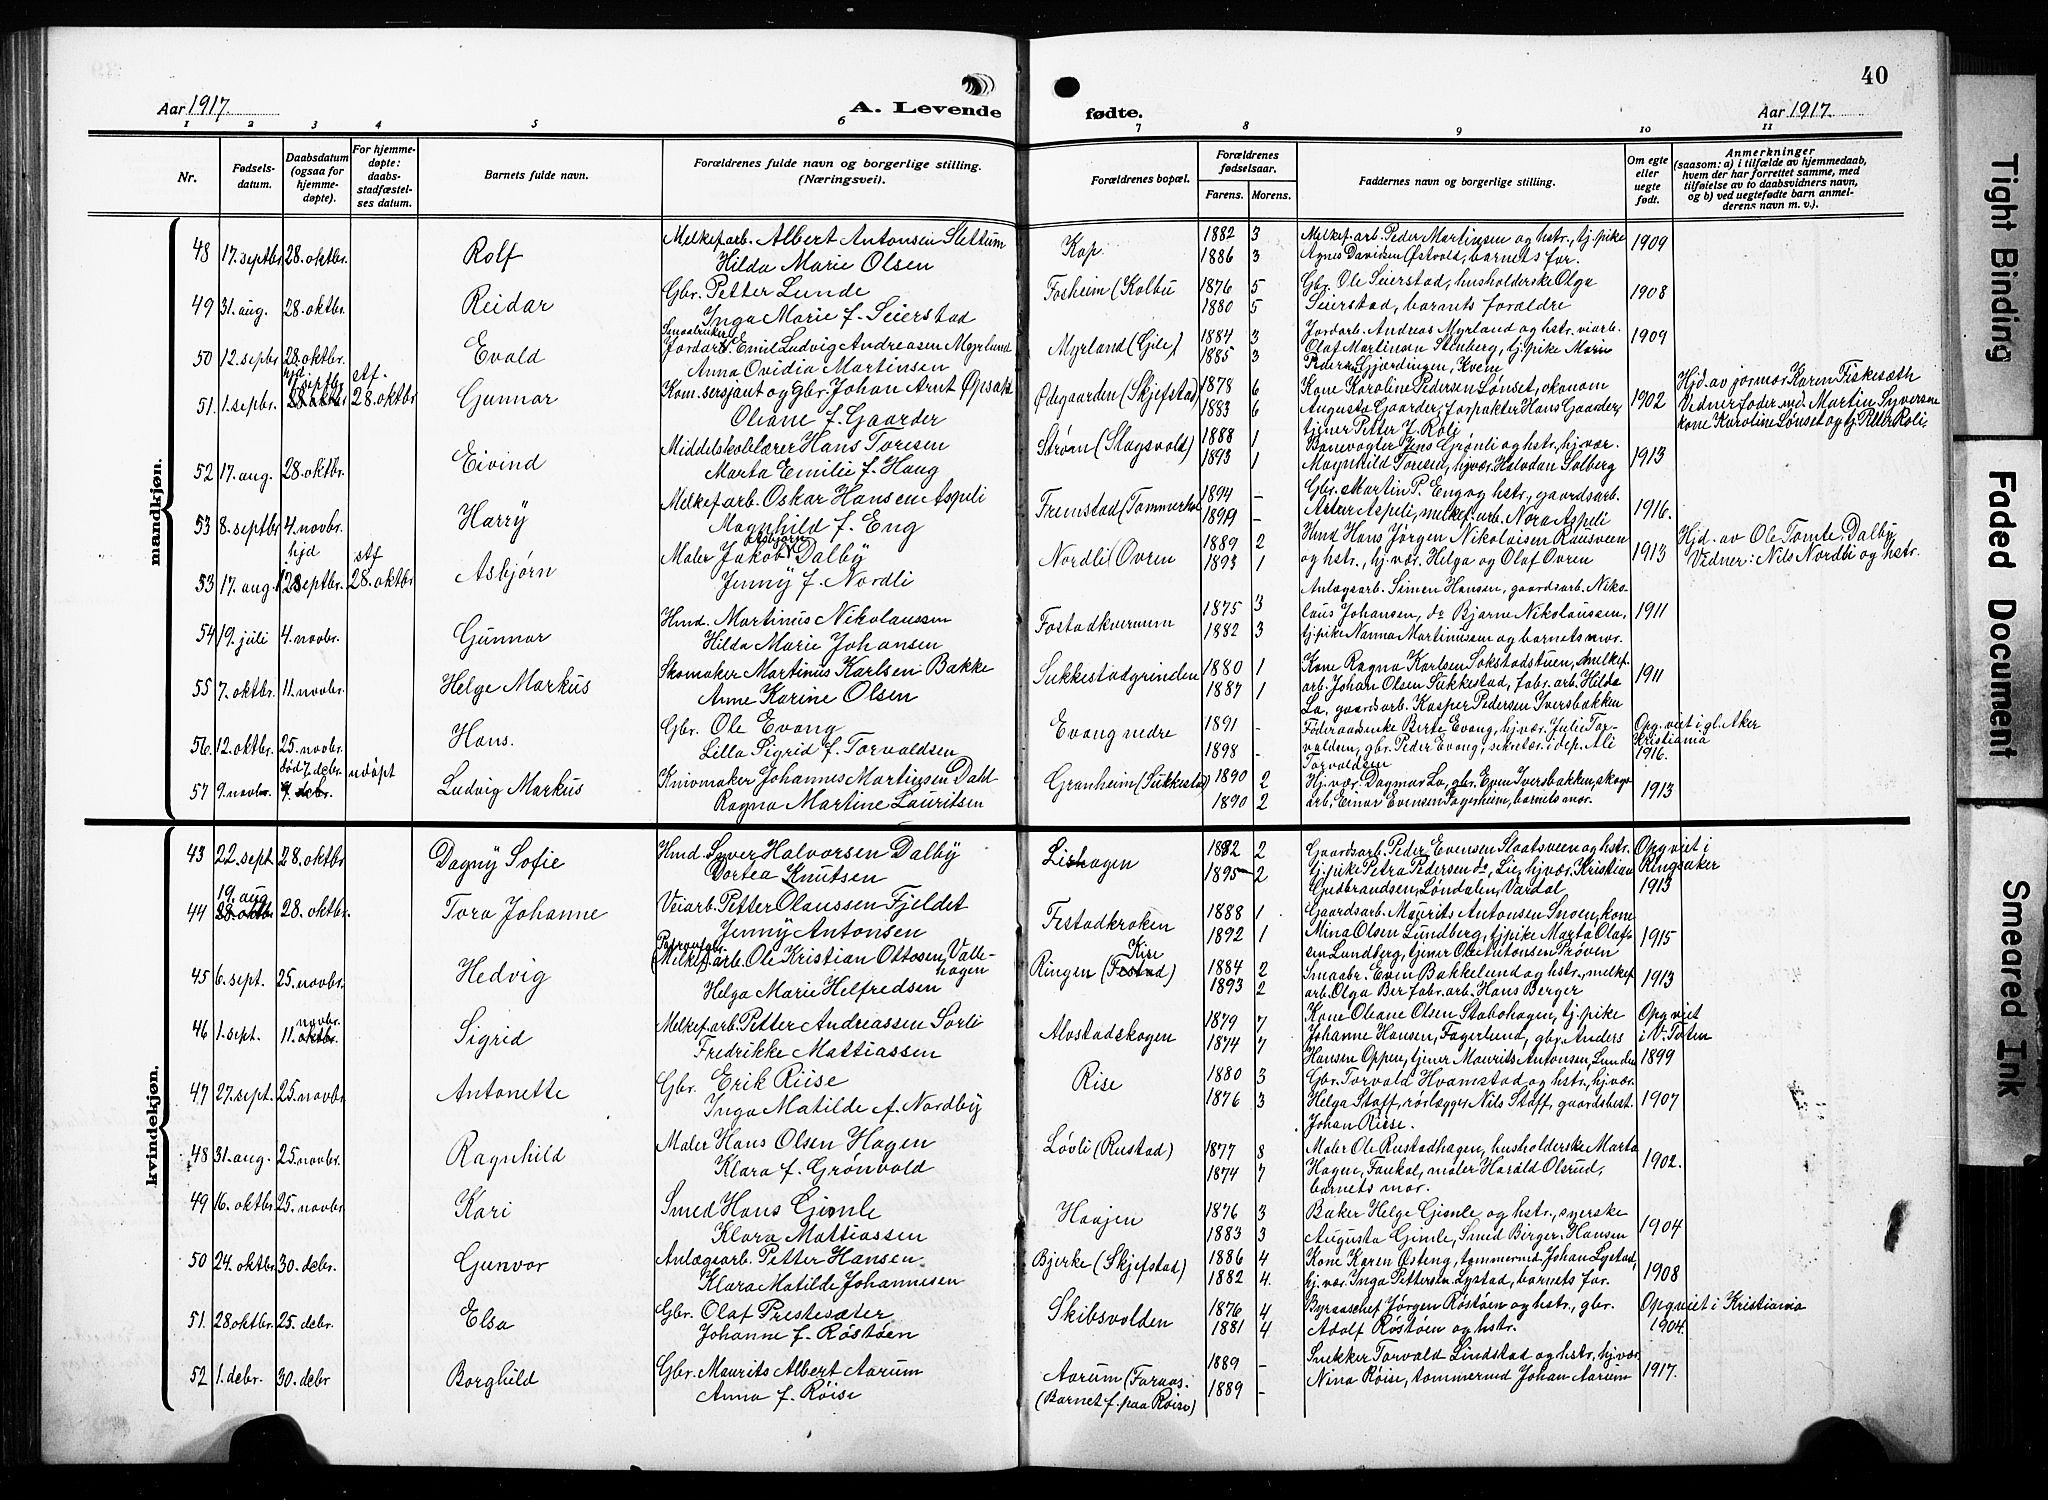 40
Aar 1917.
A. Levende fødte.
Aar 1917.
1 2 3 4 5 6 7 8 9 10 11
Nr.
Fødsels-datum.
Daabsdatum (ogsaa for hjemme-døpte).
For hjemme-døpte: daabs-stadfæstel-ses datum.
Barnets fulde navn.
Forældrenes fulde navn og borgerlige stilling. (Næringsvei).
Forældrenes bopæl.
Forældrenes fødselsaar.
Farens. Morens.
Faddernes navn og borgerlige stilling.
Om egte eller uegte født.
Anmerkninger (saasom: a) i tilfælde av hjemmedaab, hvem der har forrettet samme, med tilføielse av to daabsvidners navn, og b) ved uegtefødte barn anmel-derens navn m. v.).
mandkjøn.
48 17. septbr 28. oktbr. Rolf Melkef.arb. Albert Antonsen Slettum Kap. 1882 3 Melkef.arb. Peder Martinsen og hstr., tj.pike 1909
Hilda Marie Olsen 1886 3 Agnes Davidsen Østvold, barnets far.
49 31. aug. 28. oktbr. Reidar Gbr. Petter Lunde Fosheim (Kolbu 1876 5 Gbr. Ole Seierstad, husholderske Olga 1908
Inga Marie f. Seierstad 1880 5 Seierstad, barnets forældre
50 12. sepbr 28. oktbr. Evald Smaabruker Jordarb. Emil Ludvig Andreasen Myrlund Myrland (Gile) 1884 3 Jordarb. Andreas Myrland og hstr. viarb. 1909
Anna Ovidia Martinsen 1885 3 Olaf Martinsen Stenberg, tj.pike Marie
Pedersen Gjærdingen, Kvem
51. 1. sepbr. hjd 28 oktbr stf. 28. oktbr Gunnar Kom.sersjant og Gbr. Johan Arnt Opsak Ødegaarden (Skjefstad) 1878 6 Kone Karoline Pedersen Lønset, økonom 1902 Hjd. av jormor Karen Fiskesæth
Oliane f. Gaarder 1883 6 Augusta Gaarder, forpakter Hans Gaarder, Vidner: foder md. Martin Syversen
tjener Petter J. Roli kone Karoline Lønset og tj. Petter Roli.
52 17. aug. 28. oktbr. Eivind Middelskolelærer Hans Toresen Strøm (Slagsvold) 1888 1 Banevogter Jens Grønli og hstr., hj.vær. 1913
Marta Emilie f. Haug 1893 1 Magnhild Toresen, hj.vær. Halvdan Solberg
53 8. septbr 4. novbr. Harry Melkef.arb. Oskar Hansen Aspeli Fremstad (Tommerhol 1894 - Gbr. Martin P. Eng og hstr., gaardsarb. 1916.
Magnhild f. Eng 1899 - Artur Aspeli, melkef.arb. Nora Aspeli
53 17. aug. hjd 12 septbr. stf 28. oktbr Asbjørn Maler Jakob Asbjørn Dalby Nordli (Øvren 1889 2 Hmd Hans Jørgen Nikolaisen Rausveen 1913 Hjd. av Ole Tomte, Dalby
Jenny f. Nordli 1893 1 og hstr., hj.vær. Helga og Olaf Øvren Vidner: Nils Nordbi og hstr.
54 19. juli 4. novbr. Gunnar Hmd. Martinus Nikolaussen Fostadkvernum 1875 3 Anlagsarb. Simen Hansen, gaardsarb. Niko-
laus Johansen, do Bjarne Nikolaussen, 1911
Hilda Marie Johansen 1882 3 tj.pike Nanna Martinussen og barnets mor.
55 7. oktbr. 11. novbr. Helge Markus Skomaker Martinus Karlsen Bakke Sukkestadgrinden 1880 1 Kone Ragna Karlsen Sokstadstuen, melkef. 1911
Anne Karine Olsen 1887 1 arb. Johan Olsen Sukkestad, fabr.arb. Hilda
Lo, gaardsarb. Kasper Pedersen Iversbakken
56. 12. oktbr. 25. novbr Hans. Gbr. Ole Evang Evang nedre 1891 - Føderaadsenke Berte Evang, hj.vær. Julie Tor- Opg. viet i gl. Aker
Lilla Sigrid f. Torvaldsen 1898 - valdsen, gbr. Peder Evang, sekretær i dep. Ali Kristiania
Torvaldsen 1916.
57 9. novbr. død 7. debr. 9. debr. udøpt Ludvig Markus Knivmaker Johannes Martinsen Dahl Granheim (Sukkestad) 1890 2 Hj.vær. Dagmar Lo, gbr. Even Iversbakken, skogs- 1913
Ragna Martine Lauritsen 1890 2 arb. Einar Evensen Fagerheim, barnets mor.
kvindekjøn.
43 22. sept 28. oktbr Dagny Sofie Hmd. Syver Halvorsen Dalby Lishagen 1882 2 Gaardsarb. Peder Evensen Slaatsveen og hstr. Opg. viet i
Dortea Knutsen 1895 2 tj.pike Petra Pedersen do, Lie, hj.vær. Kristian Ringsaker
Gudbrandsen, Løndalen, Vardal 1913
44 19. aug 28. oktb. 28. oktbr. Tora Johanne Veiarb. Petter Olaussen Fjeldet Festadkroken 1888 1 Gaardsarb. Maurits Antonsen Snoen, kone
Jenny Antonsen 1892 1 Mina Olsen Lundberg, tj.pike Marta Olaf- 1915
sen Lundberg, tjener Ole Antonsen Prøven
45 6. sept. 25. novbr. Hedvig (Melkef.arb. Ole Kristian Ottosen, Valle-hagen Ringen (Festad) Kise 1884 2 Smaabr. Even Bakkelund og hstr., melkef 1913
Helga Marie Helfredsen 1893 2 arb. Olga Ber fabr.arb. Hans Berger
46 1. sept. 11. novbr. oktbr. Sigrid Melkef.arb. Petter Andreassen Sørli Alvstadskogen 1879 7 Kone Oleane Olsen Stabohagen, tj.pike Opg viet
Fredrikke Mattiassen 1874 7 Johanne Hansen, Fagerlund, gbr. Anders i V. Toten
Hansen Oppen, tjener Maurits Antonsen, Lunden 1899
47 27. sept. 25. novbr Antonette Gbr. Erik Riise Rise 1880 3 Gbr. Torvald Hvamstad og hstr., hj.vær.
Inga Matilde f. Nordby 1876 3 Helga Staff, rørlægger Nils Staff, gaardsbest. 1907
Johan Riise.
48 31. aug. 25. novbr. Ragnhild Maler Hans Olsen Hagen Løvli (Rustad) 1877 8 Maler Ole Rustadhagen, husholderske Marta
Klara f. Grønvold 1874 7 Hagen, Faukal, maler Harald Olsrud, 1902.
barnets mor.
49 16. oktbr. 25. novbr. Kari Smed Hans Gimle Haajen 1876 3 Baker Helge Gimle og hstr., syerske
Klara Mattiassen 1883 3 Augusta Gimle, Smed Birger Hansen 1904
50 24. oktbr 30. debr. Gunvor Anlægsarb. Petter Hansen Bjerke (Skjefstad) 1886 4 Kone Karen Østeng, tømmermd Johan Lystad,
Klara Matilde Johannesen 1882 4. hj.vær. Inga Pettersen Lystad, barnets far. 1908
51. 28. oktbr. 25. debr. Elsa Gbr. Olaf Prestesæter Skibsvolden 1876 4 Byraachef Jørgen Røstøen og hstr., gbr. Opg viet i Kristiania
Johanne f. Røstøen 1881 4 Adolf Røstøen og hstr. 1904.
52 1. debr. 30. debr Borghild Gbr. Maurits Albert Aarum Aarum (Foraas. 1889 - Snekker Torvald Lindstad og hstr., hj.vær. 1917.
Anna f. Røise (Barnet f. paa Røise) 1889 - Nina Røise, tømmermd Johan Aarum
Tight Binding
Faded Document
Smeared Ink